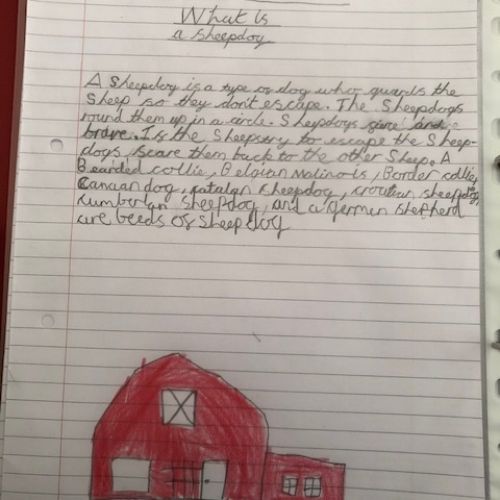 What Is
a sheepdog
A Sheepdog is a type of dog who guards the
Sheep so they don't escape. The Sheepdogs
round them up in a circle. Sheepdogs are
brave. If the Sheep try to escape the Sheep-
dogs scare them back to the other Sheep. A
Bearded collie, Belgian Malinois, Border collie,
Canaan dog, Catalan sheepdog, croatian sheepdog,
cumberlan sheepdog, and a german shepherd
are beeds of sheepdog